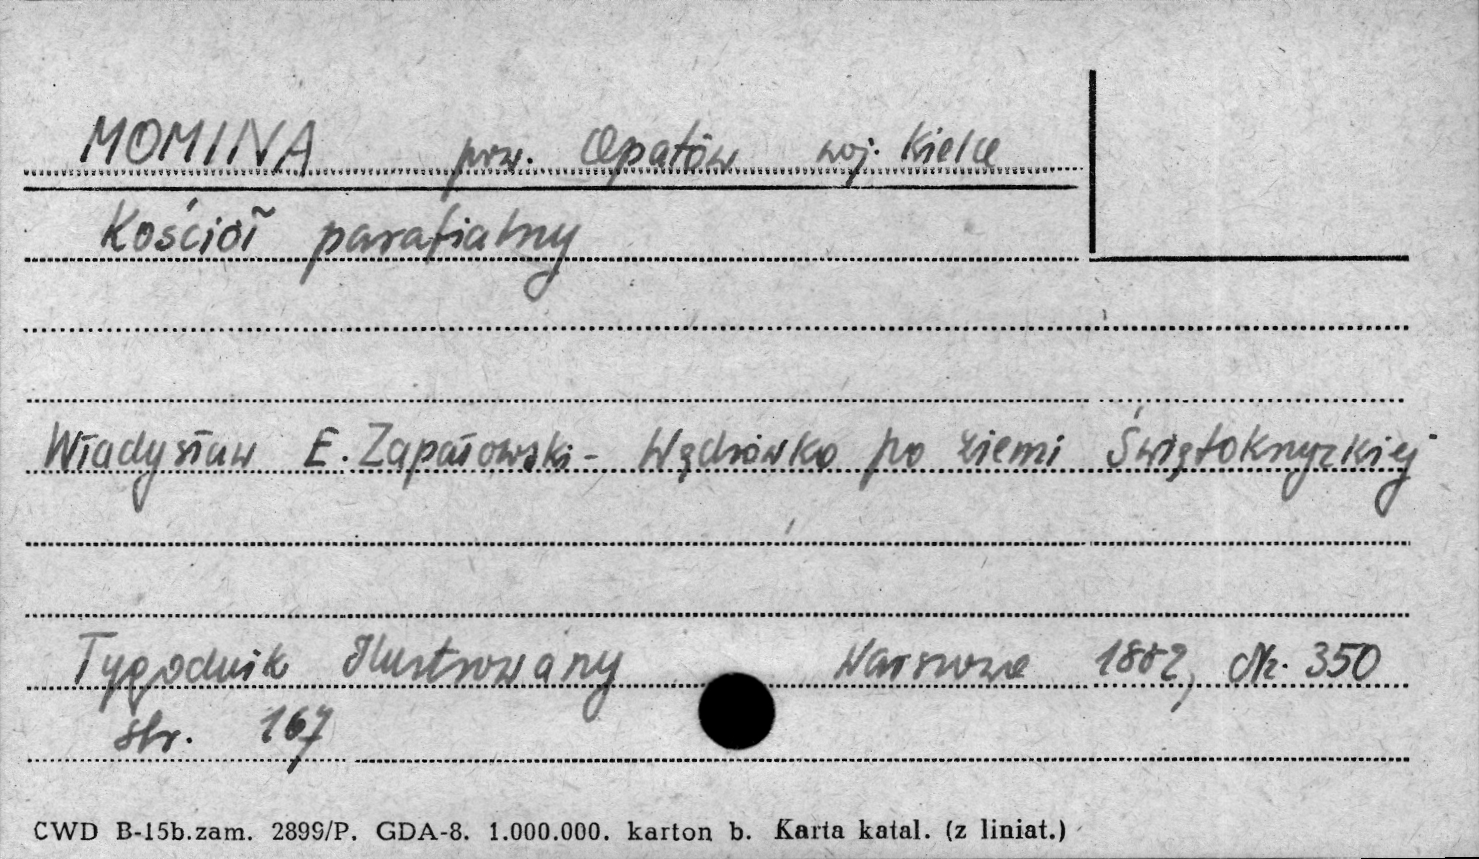 MOMINA pow. Opatów woj. Kielce
Kościół parafialny
Władysław E. Zapałowski - Wędrówka po ziemi Świętokrzyzkiej
Tygodnik Ilustrowany Warszawa 1882, Nr. 350
str. 167
CWD B-15b.zam. 2899/P. GDA-8. 1.000.000. karton b. Karta katal. (z liniat.)